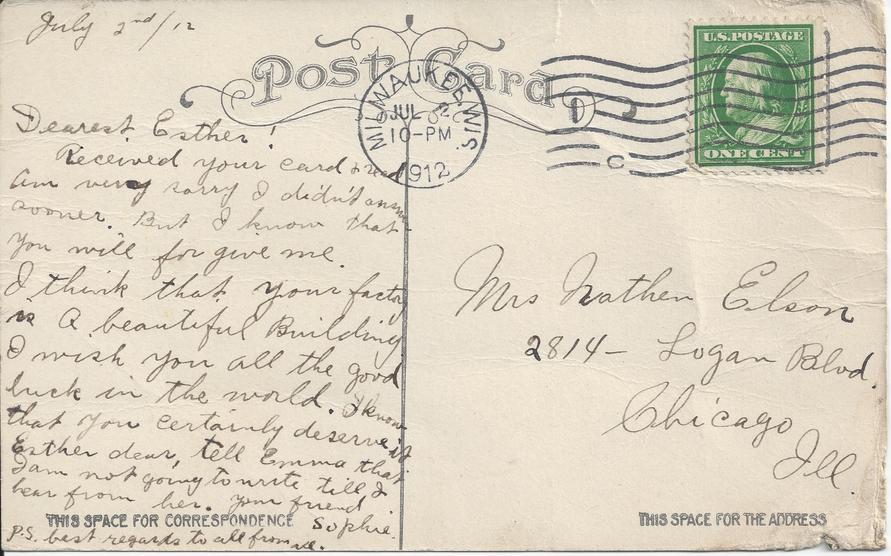 July 2nd/12
Post Card
MILWAUKEE, WIS.
JUL 2
10-PM
1912
U.S. POSTAGE
ONE CENT
Dearest Esther!
Received your card &
am very sorry I didn't answer
sooner. But I know that
you will forgive me.
I think that your factory
is A beautiful Building
I wish you all the good
luck in the world. I know
that you certainly deserve it
Esther dear, tell Emma that
I am not going to write till I
hear from her. your friend
Sophie.
P.S. best regards to all from me.
THIS SPACE FOR CORRESPONDENCE
Mrs Nathen Elson
2814- Logan Blvd.
Chicago
Ill.
THIS SPACE FOR THE ADDRESS